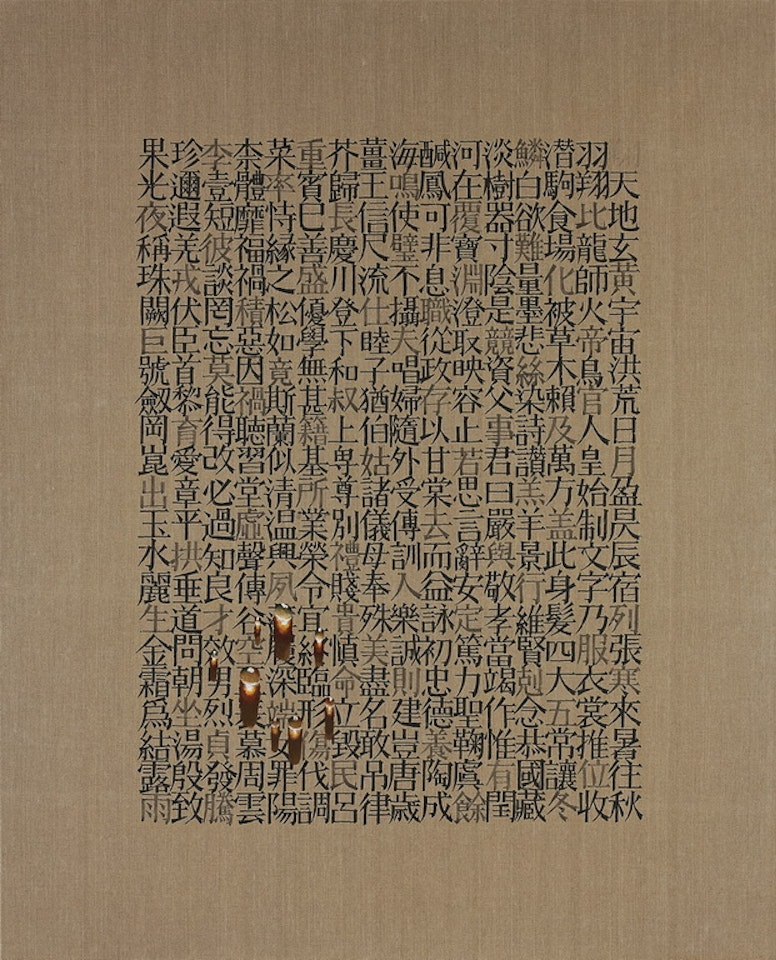 天地玄黃宇宙洪荒日月盈昃辰宿列張寒來暑往秋
羽翔比龍師火帝鳥官人皇始制文字乃服衣裳推位收
潛駒食場化被草木賴及萬方蓋此身髮四大五常讓冬
鱗白欲難量墨悲絲染詩讃羔羊景行維賢剋念恭國藏
淡樹器寸陰是競資父事君曰嚴與敬孝當竭作惟有閏
河在覆寶淵澄取映容止若思言辭安定篤力聖鞠虞餘
鹹鳳可非息職從政存以甘棠去而益詠初忠德養陶成
海鳴使璧不攝夫唱婦隨外受傅訓入樂誠則建豈唐歲
薑王信尺流仕睦子猶伯姑諸儀母奉殊美盡名敢吊律
芥歸長慶川登下和叔上卑尊別禮賤貴慎命立毀民呂
重賓巳善盛優學無甚籍基所業榮令宜終臨形傷伐調
菜率恃緣之松如竟斯蘭似清温興夙履深端女罪陽
柰體靡福禍積惡因禍聽習堂虛聲傳谷空表慕周雲
李壹短彼談罔忘莫能得改必過知良才效男烈貞發騰
珍邇遐羌戎伏臣首黎育愛章平拱垂道問朝坐湯殷致
果光夜稱珠闕巨號劒岡崑出玉水麗生金霜爲結露雨